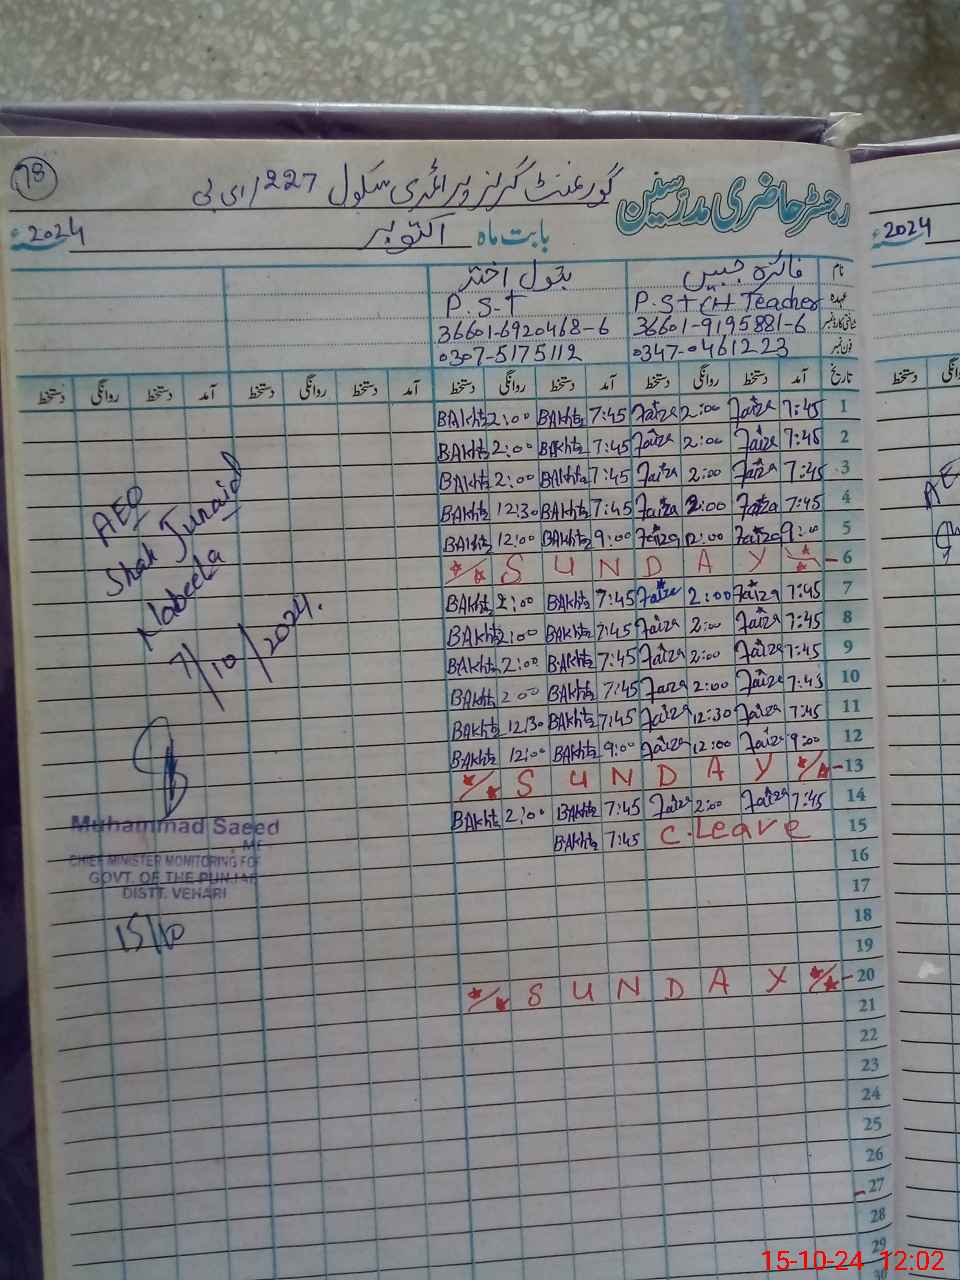 78
رجسٹر حاضری مدرسین گورنمنٹ گرلز پرائمری سکول 227/ای بی
بابت ماہ اکتوبر 2024ء
2024ء
نام فائزہ جبیں بتول اختر
عہدہ P.S.T (H Teacher P.S.T
شناختی کارڈ نمبر 36601-9195881-6 36601-6920468-6
فون نمبر 0347-0461223 0307-5175112
تاریخ آمد دستخط روانگی دستخط آمد دستخط روانگی دستخط آمد دستخط روانگی دستخط آمد دستخط روانگی دستخط
1 7:45 Faiza 2:00 Faiza 7:45 BAkht 2:00 BAkht
2 7:45 Faiza 2:00 Faiza 7:45 BAkht 2:00 BAkht
3 7:45 Faiza 2:00 Faiza 7:45 BAkht 2:00 BAkht
4 7:45 Faiza 2:00 Faiza 7:45 BAkht 12:30 BAkht
5 9:00 Faiza 12:00 Faiza 9:00 BAkht 12:00 BAkht
6 SUNDAY
7 7:45 Faiza 2:00 Faiza 7:45 BAkht 2:00 BAkht
8 7:45 Faiza 2:00 Faiza 7:45 BAkht 2:00 BAkht
9 7:45 Faiza 2:00 Faiza 7:45 BAkht 2:00 BAkht
10 7:45 Faiza 2:00 Faiza 7:45 BAkht 2:00 BAkht
11 7:45 Faiza 12:30 Faiza 7:45 BAkht 12:30 BAkht
12 9:00 Faiza 12:00 Faiza 9:00 BAkht 12:00 BAkht
13 SUNDAY
14 7:45 Faiza 2:00 Faiza 7:45 BAkht 2:00 BAkht
15 C.Leave 7:45 BAkht
16
17
18
19
20 SUNDAY
21
22
23
24
25
26
27
28
29
AEO
Shah Junaid
Nabeela
7/10/2024.
Muhammad Saeed
CHIEF MINISTER MONITORING FOR
GOVT. OF THE PUNJAB
DISTT. VEHARI
15/10
15-10-24 12:02